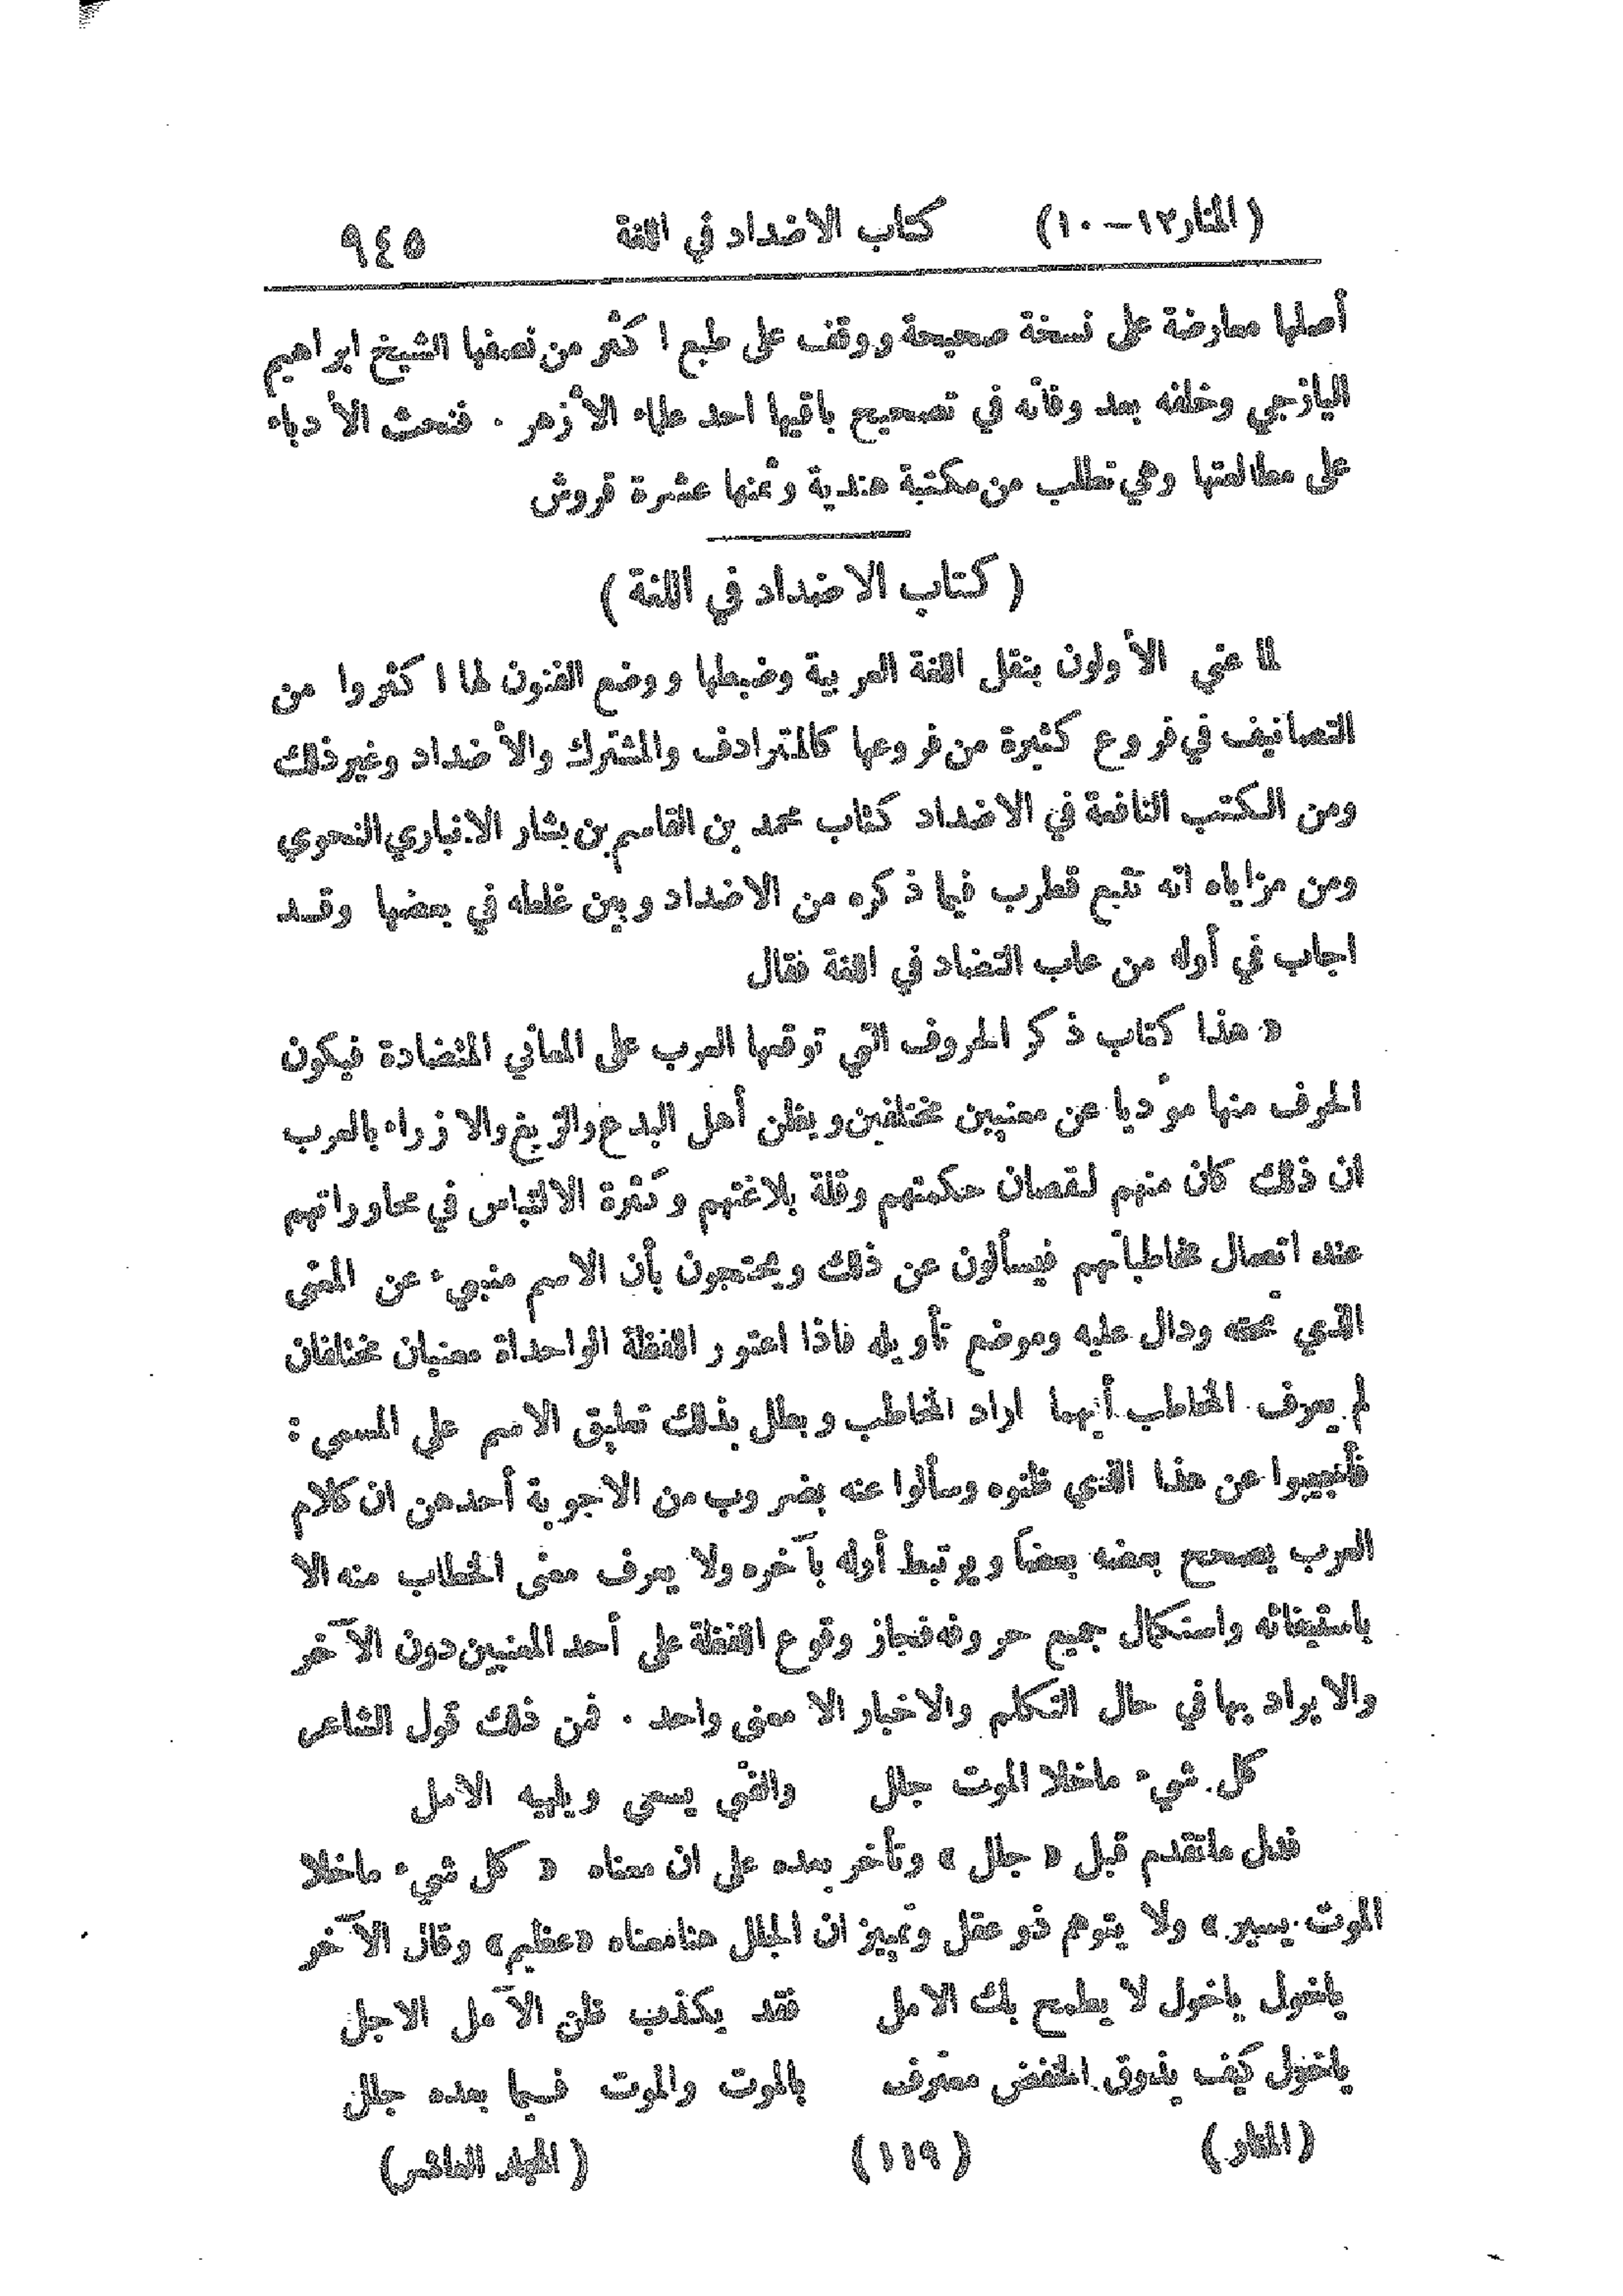 (المنار ١٢–١٠) كتاب الاضداد في اللغة ٩٤٥
أصلها معارضة على نسخة صحيحة ووقف على طبع اكثر من نصفها الشيخ ابراهيم
اليازجي وخلفه بعد وفاته في تصحيح باقيها احد علماء الأزهر . فنحث الأدباء
على مطالعتها وهي تطلب من مكتبة هندية وثمنها عشرة قروش
( كتاب الاضداد في اللغة )
لما عني الأولون بنقل اللغة العربية وضبطها ووضع الفنون لها اكثروا من
التصانيف في فروع كثيرة من فروعها كالمترادف والمشترك والأضداد وغير ذلك
ومن الكتب النافعة في الاضداد كتاب محمد بن القاسم بن بشار الانباري النحوي
ومن مزاياه انه تتبع قطرب فيما ذكره من الاضداد وبين غلطه في بعضها وقد
اجاب في أوله من عاب التضاد في اللغة فقال
« هذا كتاب ذكر الحروف التي توقعها العرب على المعاني المتضادة فيكون
الحرف منها مؤديا عن معنيين مختلفين ويظن أهل البدع والزيغ والازراء بالعرب
ان ذلك كان منهم لنقصان حكمتهم وقلة بلاغتهم وكثرة الالتباس في محاوراتهم
عند اتصال مخاطباتهم فيسألون عن ذلك ويحتجون بأن الاسم منبىء عن المعنى
الذي تحته ودال عليه وموضع تأويله فاذا اعتور اللفظة الواحداة معنيان مختلفان
لم يعرف المخاطب أيهما اراد المخاطب وبطل بذلك تعليق الاسم على المسمى :
فأجيبوا عن هذا الذي ظنوه وسألوا عنه بضروب من الاجوبة أحدهن ان كلام
العرب يصحح بعضه بعضاً ويرتبط أوله بآخره ولا يعرف معنى الخطاب منه الا
باستيفائه واستكمال جميع حروفه فجاز وقوع اللفظة على أحد المعنيين دون الآخر
والا يراد بها في حال التكلم والاخبار الا معنى واحد . فمن ذلك قول الشاعر
كل شيء ماخلا الموت جلل والفتى يسعى ويلهيه الامل
فدل ماتقدم قبل « جلل » وتأخر بعده على ان معناه « كل شيء ماخلا
الموت يسير » ولا يتوهم ذو عقل وتمييز ان الجلل هنا معناه «عظيم» وقال الآخر
ياخول ياخول لا يطمح بك الامل فقد يكذب ظن الآمل الاجل
ياخول كيف يذوق الخفض معترف بالموت والموت فيما بعده جلل
(المنار) (١١٩) (المجلد العاشر)